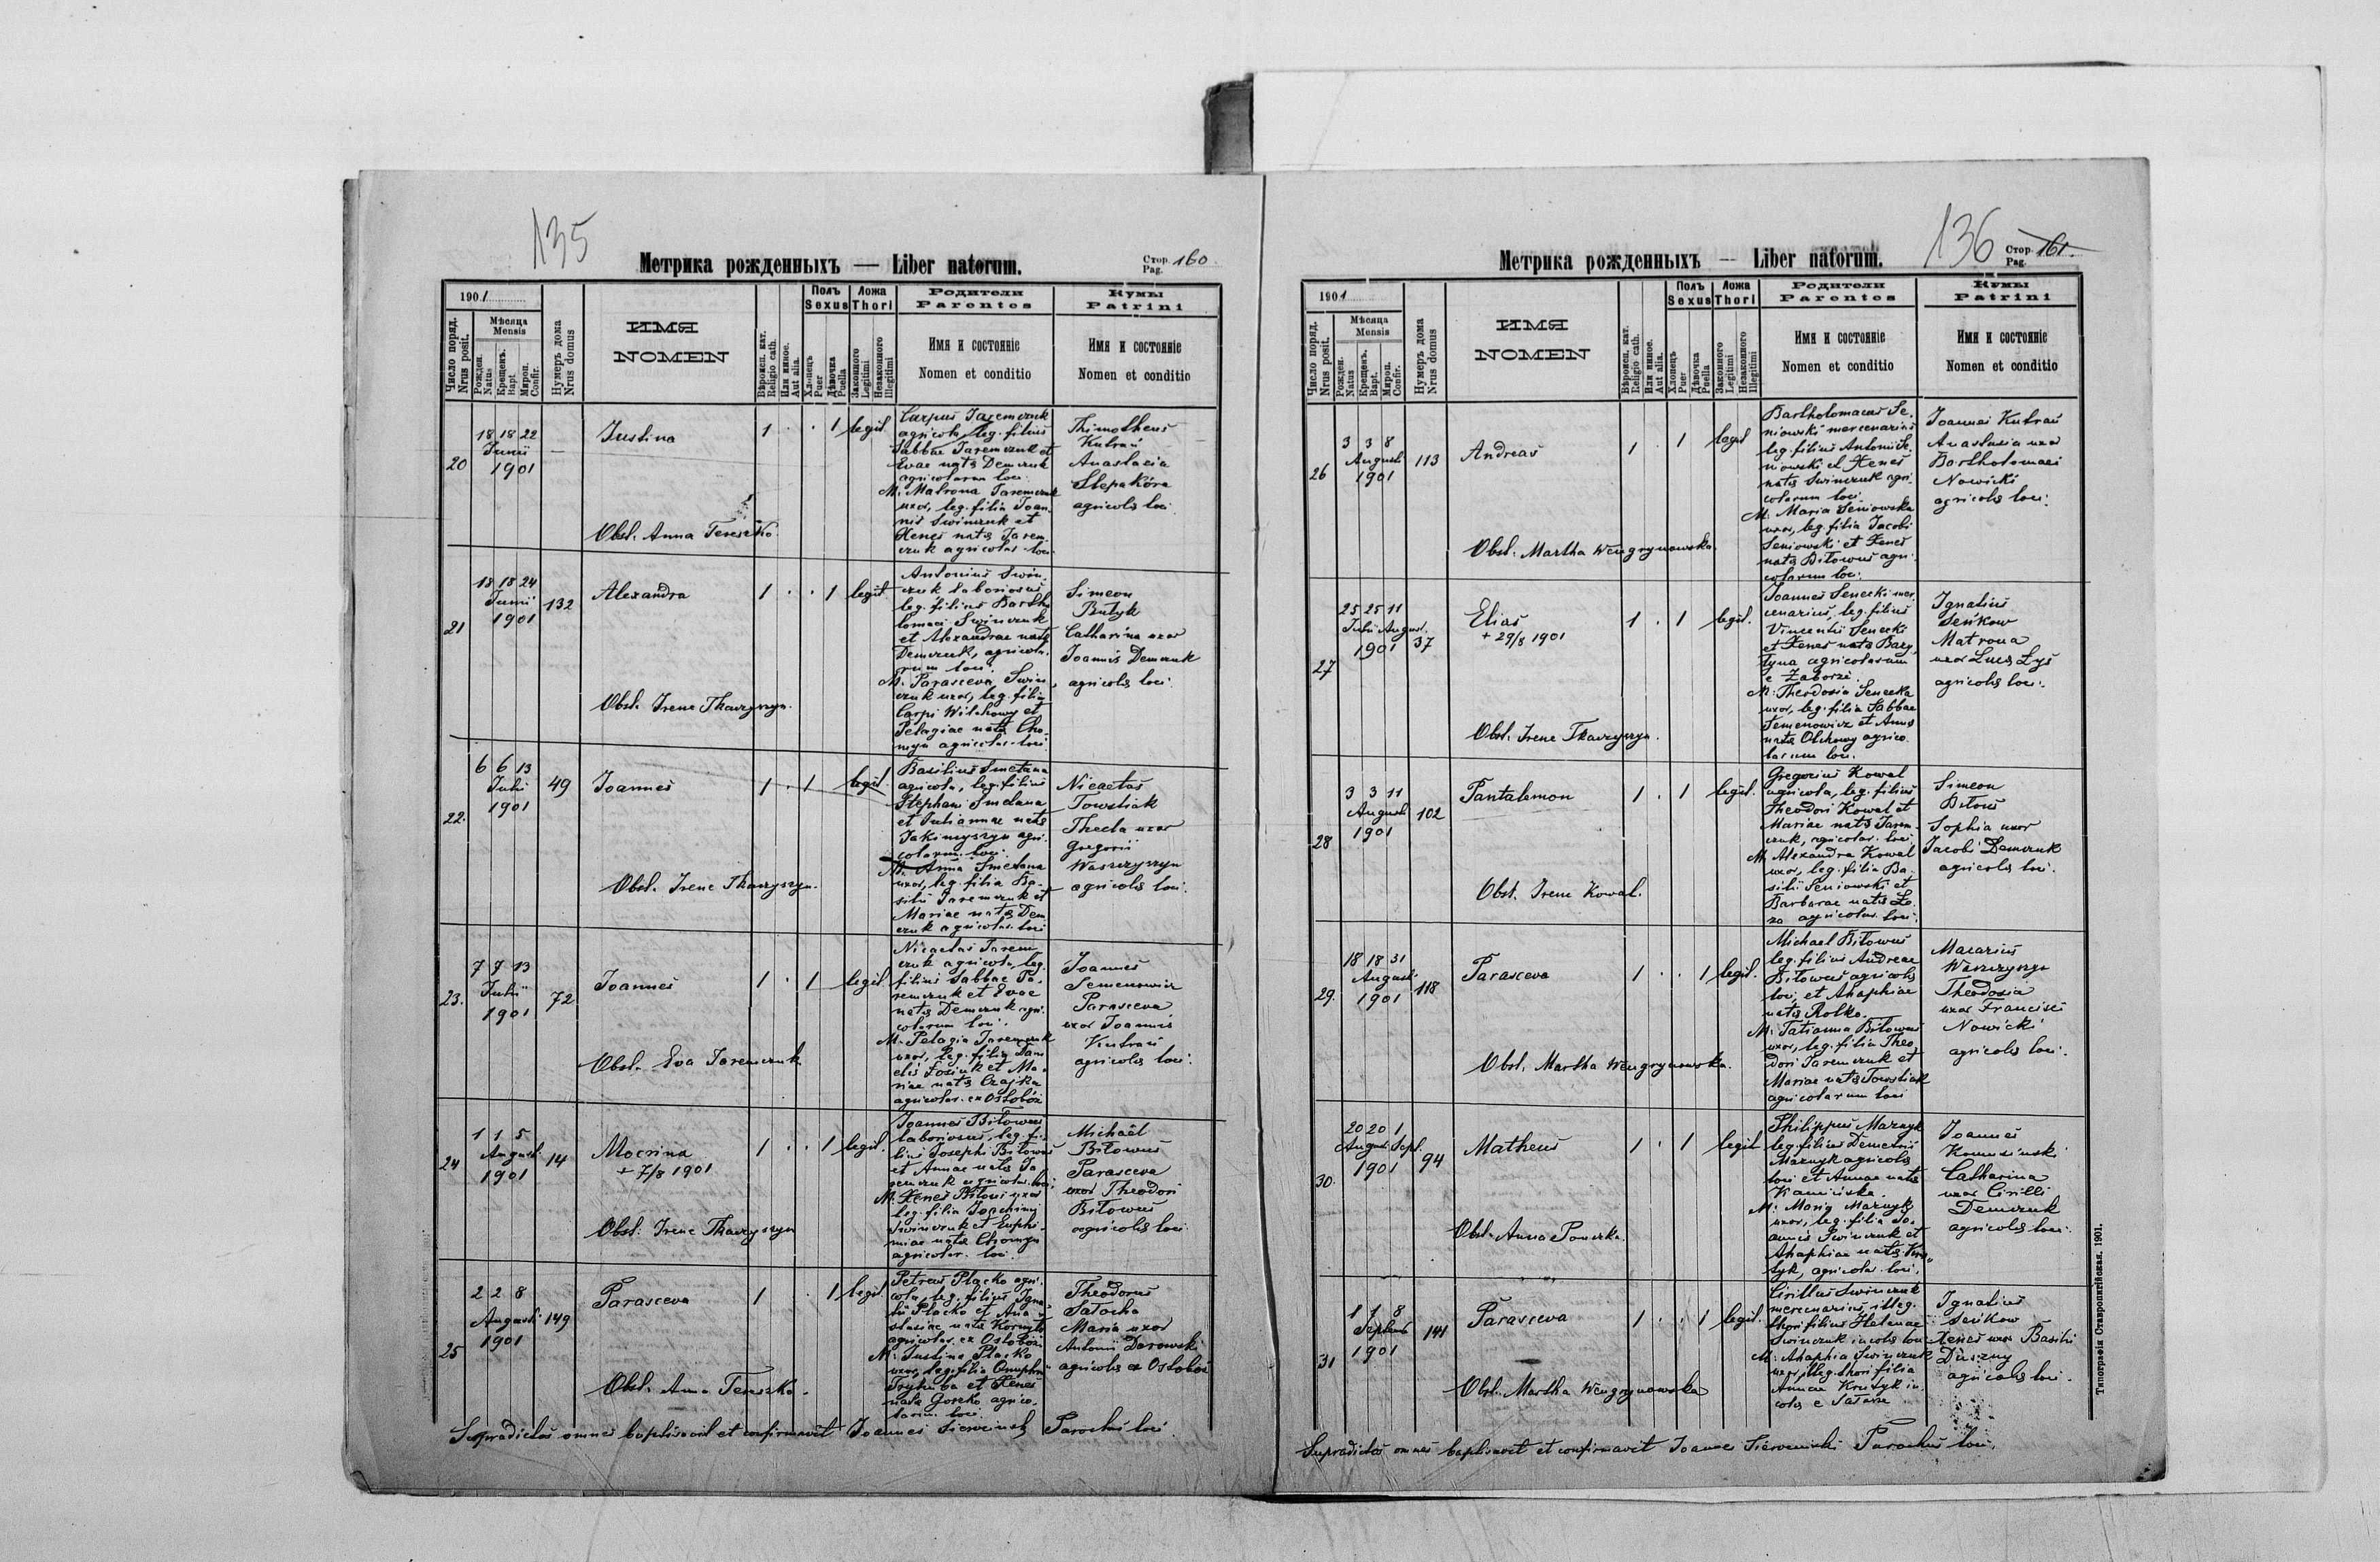 135
Метрика рожденныхъ — Liber natorum.
Стор. Pag. 160
1901
Число поряд. Nrus posit.
Мѣсяца Mensis
Рожден. Natus
Крещенъ. Bapt.
Мѵроп. Confir.
Нумеръ дома Nrus domus
ИМЯ
NOMEN
Вѣроисп. кат. Religio cath.
Или инное. Aut alia.
Полъ Sexus
Хлопецъ Puer
Дѣвочка Puella
Ложа Thori
Законного Legitimi
Незаконного Illegitimi
Родители
Parentes
Имя и состояніе
Nomen et conditio
Кумы
Patrini
Имя и состояніе
Nomen et conditio
20
18 18 22
Junii
1901
Justina
Obst. Anna Tereszko
1 . . 1 legit.
Carpus Jaremczuk
agricola, leg. filius
Sabbae Jaremczuk et
Evae nata Demczuk
agricolarum loci.
M. Matrona Jaremczuk
uxor, leg. filia Joan-
nis Swinczuk et
Xenes nata Jarem-
czuk agricolar. loci
Thimotheus
Kutrań
Anastacia
Slepakóra
agricolis loci
21
18 18 24
Junii
1901
132
Alexandra
Obst. Irene Tkaczyszyn.
1 . . 1 legit
Antonius Swin-
czuk laboriosus
leg. filius Bartho
lomaei Swinczuk
et Alexandrae nata
Demczuk, agricola-
rum loci.
M. Parasceva Swin-
czuk uxor, leg. filia
Carpi Wilchowy et
Pelagiae nata Cho-
myn agricolar. loci
Simeon
Butyk
Catharina uxor
Joannis Demczuk
agricolis loci.
22.
6 6 13
Julii
1901
49
Joannes
Obst. Irene Tkaczyszyn.
1 . 1 legit.
Basilius Smetana
agricola, leg. filius
Stephani Smetana
et Juliannae nata
Jakimyszyn agri-
colarum loci.
M. Anna Smetana
uxor, leg. filia Ba-
silii Jaremczuk et
Mariae nata Dem
czuk agricolar. loci
Nicaetas
Towstiak
Thecla uxor
Gregorii
Waszczyszyn
agricolis loci.
23.
7 7 13
Julii
1901
72
Joannes
Obst. Eva Jaremczuk
1 . 1 legit.
Nicaetas Jarem
czuk agricola, leg.
filius Sabbae Ja-
remczuk et Evae
nata Demczuk agri-
colarum loci.
M. Pelagia Jaremczuk
uxor, leg. filia Dani
elis Łosiuk et Ma-
riae nata Czajka
agricolar. ex Osłobói
Joannes
Semenowicz
Parasceva
uxor Joannis
Kutrań
agricolis loci.
24
1 1 5
Augusti
1901
14
Mocrina
+ 7/8 1901
Obst. Irene Tkaczyszyn
1 . . 1 legit.
Joannes Biłowus
laboriosus, leg. fi-
lius Josephi Biłowus
et Annae nata Ja
remczuk agricolar. loci
M. Xenes Biłous uxor
leg. filia Joachimi
Swinczuk et Euphi-
miae nata Chomyn
agricolar. loci.
Michaël
Biłowus
Parasceva
uxor Theodori
Biłowus
agricolis loci.
25
2 2 8
Augusti
1901
149
Parasceva
Obst. Anna Tereszko.
1 . 1 legit.
Petrus Placko agri-
cola, leg. filius Igna
tii Placko et Ana-
stasiae nata Kornyło
agricolar. ex Osłobói
M. Justina Placko
uxor, leg. filia Onuphrii
Tryhuba et Xenes
nata Gorcko agrico-
larum loci.
Theodorus
Sałocha
Maria uxor
Antonii Darowski
agricolis ex Osłobói
Supradictos omnes baptisavit et confirmavit Joannes Sieroiński Parochus loci
136
Метрика рожденныхъ — Liber natorum.
Стор. Pag. 161.
1901
Число поряд. Nrus posit.
Мѣсяца Mensis
Рожден. Natus
Крещенъ. Bapt.
Мѵроп. Confir.
Нумеръ дома Nrus domus
ИМЯ
NOMEN
Вѣроисп. кат. Religio cath.
Или инное. Aut alia.
Полъ Sexus
Хлопецъ Puer
Дѣвочка Puella
Ложа Thori
Законного Legitimi
Незаконного Illegitimi
Родители
Parentes
Имя и состояніе
Nomen et conditio
Кумы
Patrini
Имя и состояніе
Nomen et conditio
26
3 3 8
Augusti
1901
113
Andreas
Obst. Martha Wengrynowska
1 . 1 legit
Bartholomaeus Se-
niowski mercenarius
leg. filius Antonii Se-
niowski et Xenes
nata Swinczuk agri-
colarum loci.
M. Maria Seniowska
uxor, leg. filia Jacobi
Seniowski et Xenes
nata Biłowus agri-
colarum loci.
Joannes Kutrań
Anastasia uxor
Bartholomaei
Nowicki
agricolis loci.
27
25 25 11
Julii August.
1901
37
Elias
+ 29/8 1901
Obst. Irene Tkaczyszyn.
1 . 1 legit.
Joannes Senecki mer-
cenarius, leg. filius
Vincentii Senecki
et Xenes nata Bary-
łyna agricolarum
e Zaborze.
M. Theodosia Senecka
uxor, leg. filia Sabbae
Semenowicz et Annae
nata Olchowy agrico-
larum loci.
Ignatius
Seńkow
Matrona
uxor Lucae Łyś
agricolis loci.
28
3 3 11
Augusti
1901
102
Pantalemon
Obst. Irene Kowal.
1 . 1 legit.
Gregorius Kowal
agricola, leg. filius
Theodori Kowal et
Mariae nata Jarem-
czuk, agricolar. loci
M. Alexandra Kowal
uxor, leg. filia Ba-
silii Seniowski et
Barbarae nata Ło-
za agricolar. loci.
Simeon
Biłous
Sophia uxor
Jacobi Demczuk
agricolis loci.
29.
18 18 31
Augusti
1901
118
Parasceva
Obst. Martha Wengrynowska.
1 . . 1 legit.
Michael Biłowus
leg. filius Andreae
Biłowus agricolis
loci, et Ahaphiae
nata Rolko.
M. Tatianna Biłowus
uxor, leg. filia Theo
dori Jaremczuk et
Mariae nata Towstiak
agricolarum loci
Macarius
Waszczyszyn
Theodosia
uxor Francisci
Nowicki
agricolis loci.
30.
20 20 1
Augusti Sept.
1901
94
Matheus
Obst. Anna Ponczka.
1 . 1 legit
Philippus Maznyk
leg. filius Demetrii
Maznyk agricolis
loci et Annae nata
Kamińska.
M. Maria Maznyk
uxor, leg. filia Jo-
annis Swinczuk et
Ahaphiae nata Kru-
tyk, agricolar. loci.
Joannes
Kamiński
Catharina
uxor Cirilli
Demczuk
agricolis loci.
31
1 1 8
Septemb
1901
141
Parasceva
Obst. Martha Wengrynowska
1 . . 1 legit.
Cirillus Swinczuk
mercenarius, illeg.
thori filius Helenae
Swinczuk incolis loci
M. Ahaphia Swinczuk
uxor, illeg. thori filia
Annae Krutyk in-
colis e Sałasze
Ignatius
Seńkow
Xenes uxor Basilii
Duszny
agricolis loci.
Supradictos omnes baptisavit et confirmavit Joannes Sieroiński Parochus loci.
Типографія Ставропигійская, 1901.